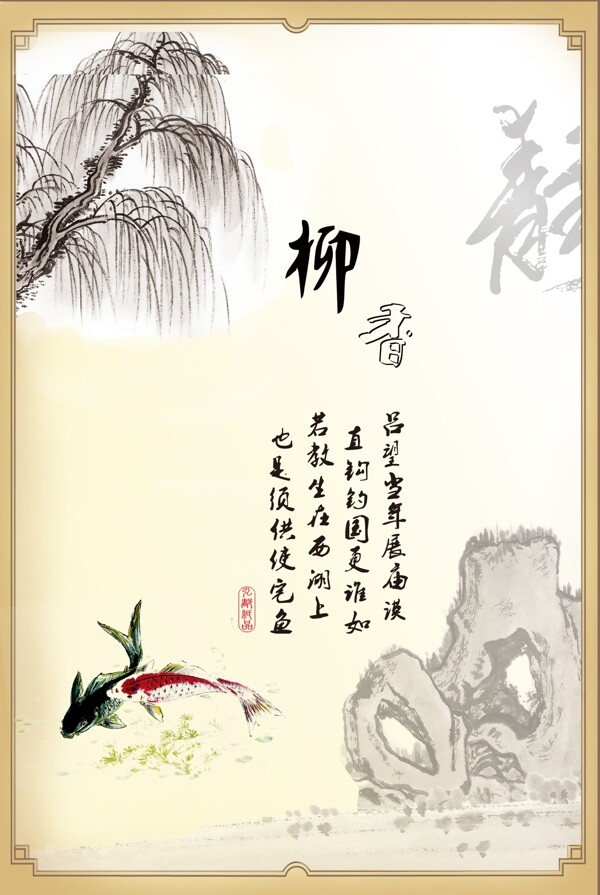 柳香
吕望当年展庙谟
直钩钓国更谁如
若教生在西湖上
也是须供使宅鱼